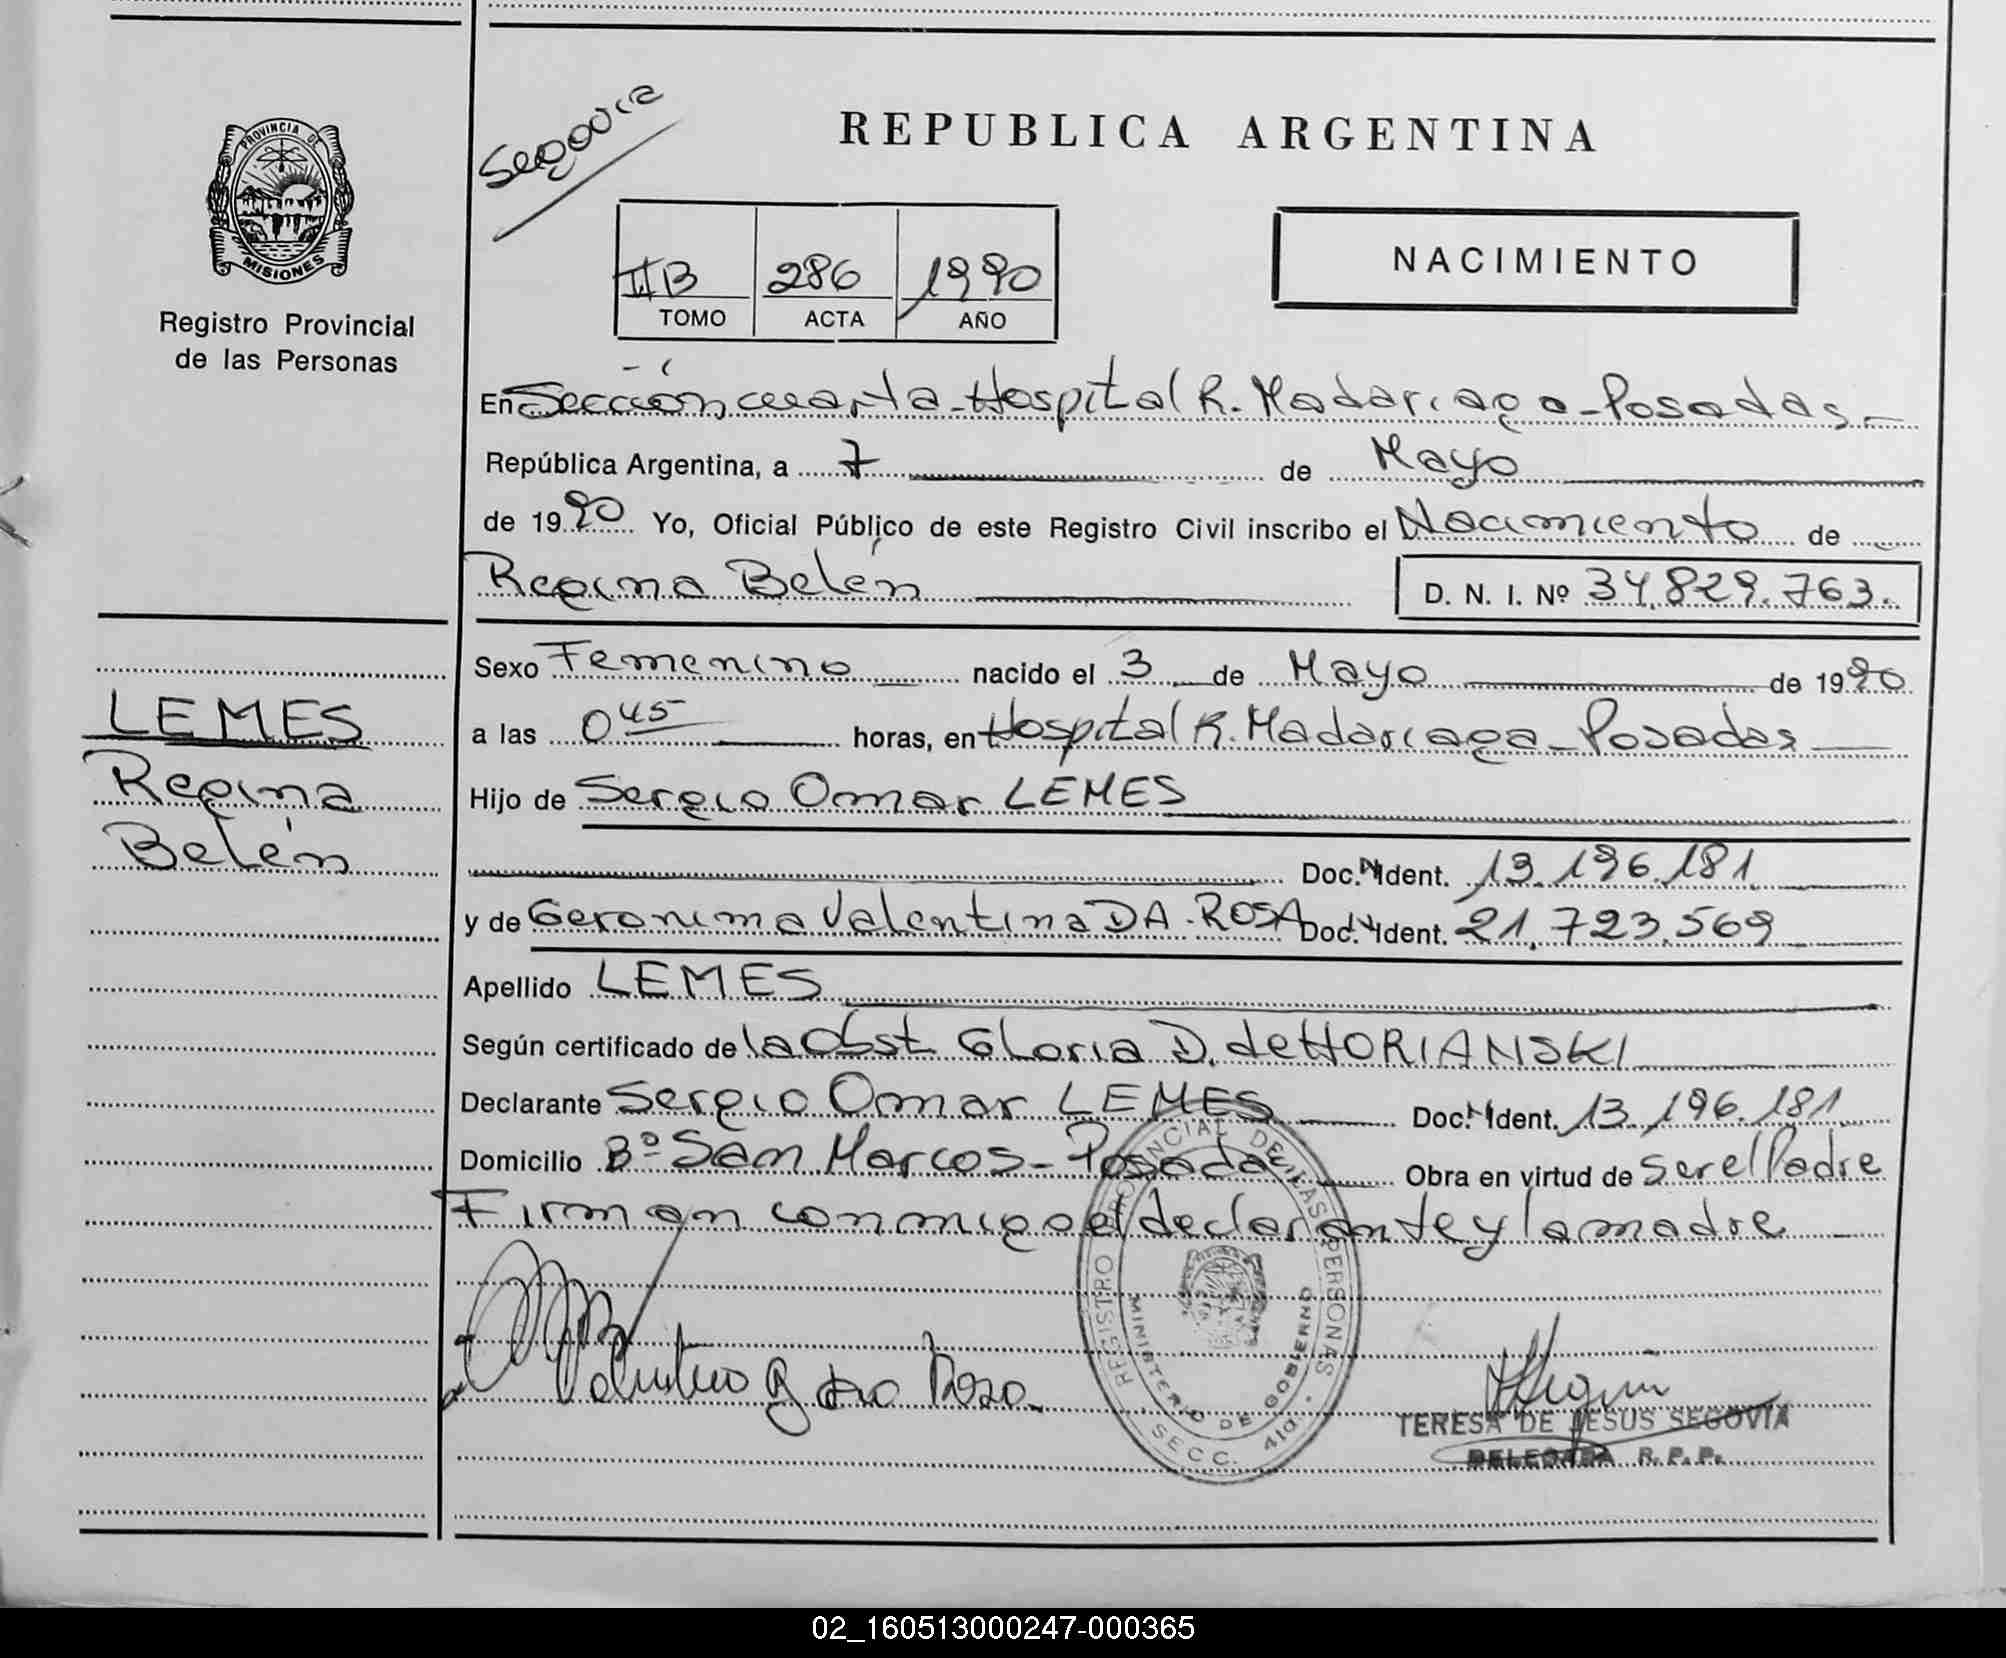 Segovia
REPUBLICA ARGENTINA
PROVINCIA DE
MISIONES
Registro Provincial
de las Personas
II B 286 1990
TOMO ACTA AÑO
NACIMIENTO
En Sección cuarta - Hospital R. Madariaga - Posadas -
República Argentina, a 7 de Mayo
de 1990 Yo, Oficial Público de este Registro Civil inscribo el Nacimiento de
Regina Belén D. N. I. Nº 34.829.763.
Sexo Femenino nacido el 3 de Mayo de 1990
a las 0 45 horas, en Hospital R. Madariaga - Posadas
Hijo de Sergio Omar LEMES
Doc. N Ident. 13.196.181
y de Geronima Valentina DA - ROSA Doc. N Ident. 21.723.569
Apellido LEMES
Según certificado de la Obst Gloria D. de HORIANSKI
Declarante Sergio Omar LEMES Doc. N Ident. 13.196.181
Domicilio Bº San Marcos - Posadas Obra en virtud de Ser el Padre
Firman conmigo el declarante y la madre
LEMES
Regina
Belén
REGISTRO PROVINCIAL DE LAS PERSONAS
MINISTERIO DE GOBIERNO
SECC. 4ta.
TERESA DE JESUS SEGOVIA
DELEGADA R. P. P.
02_160513000247-000365